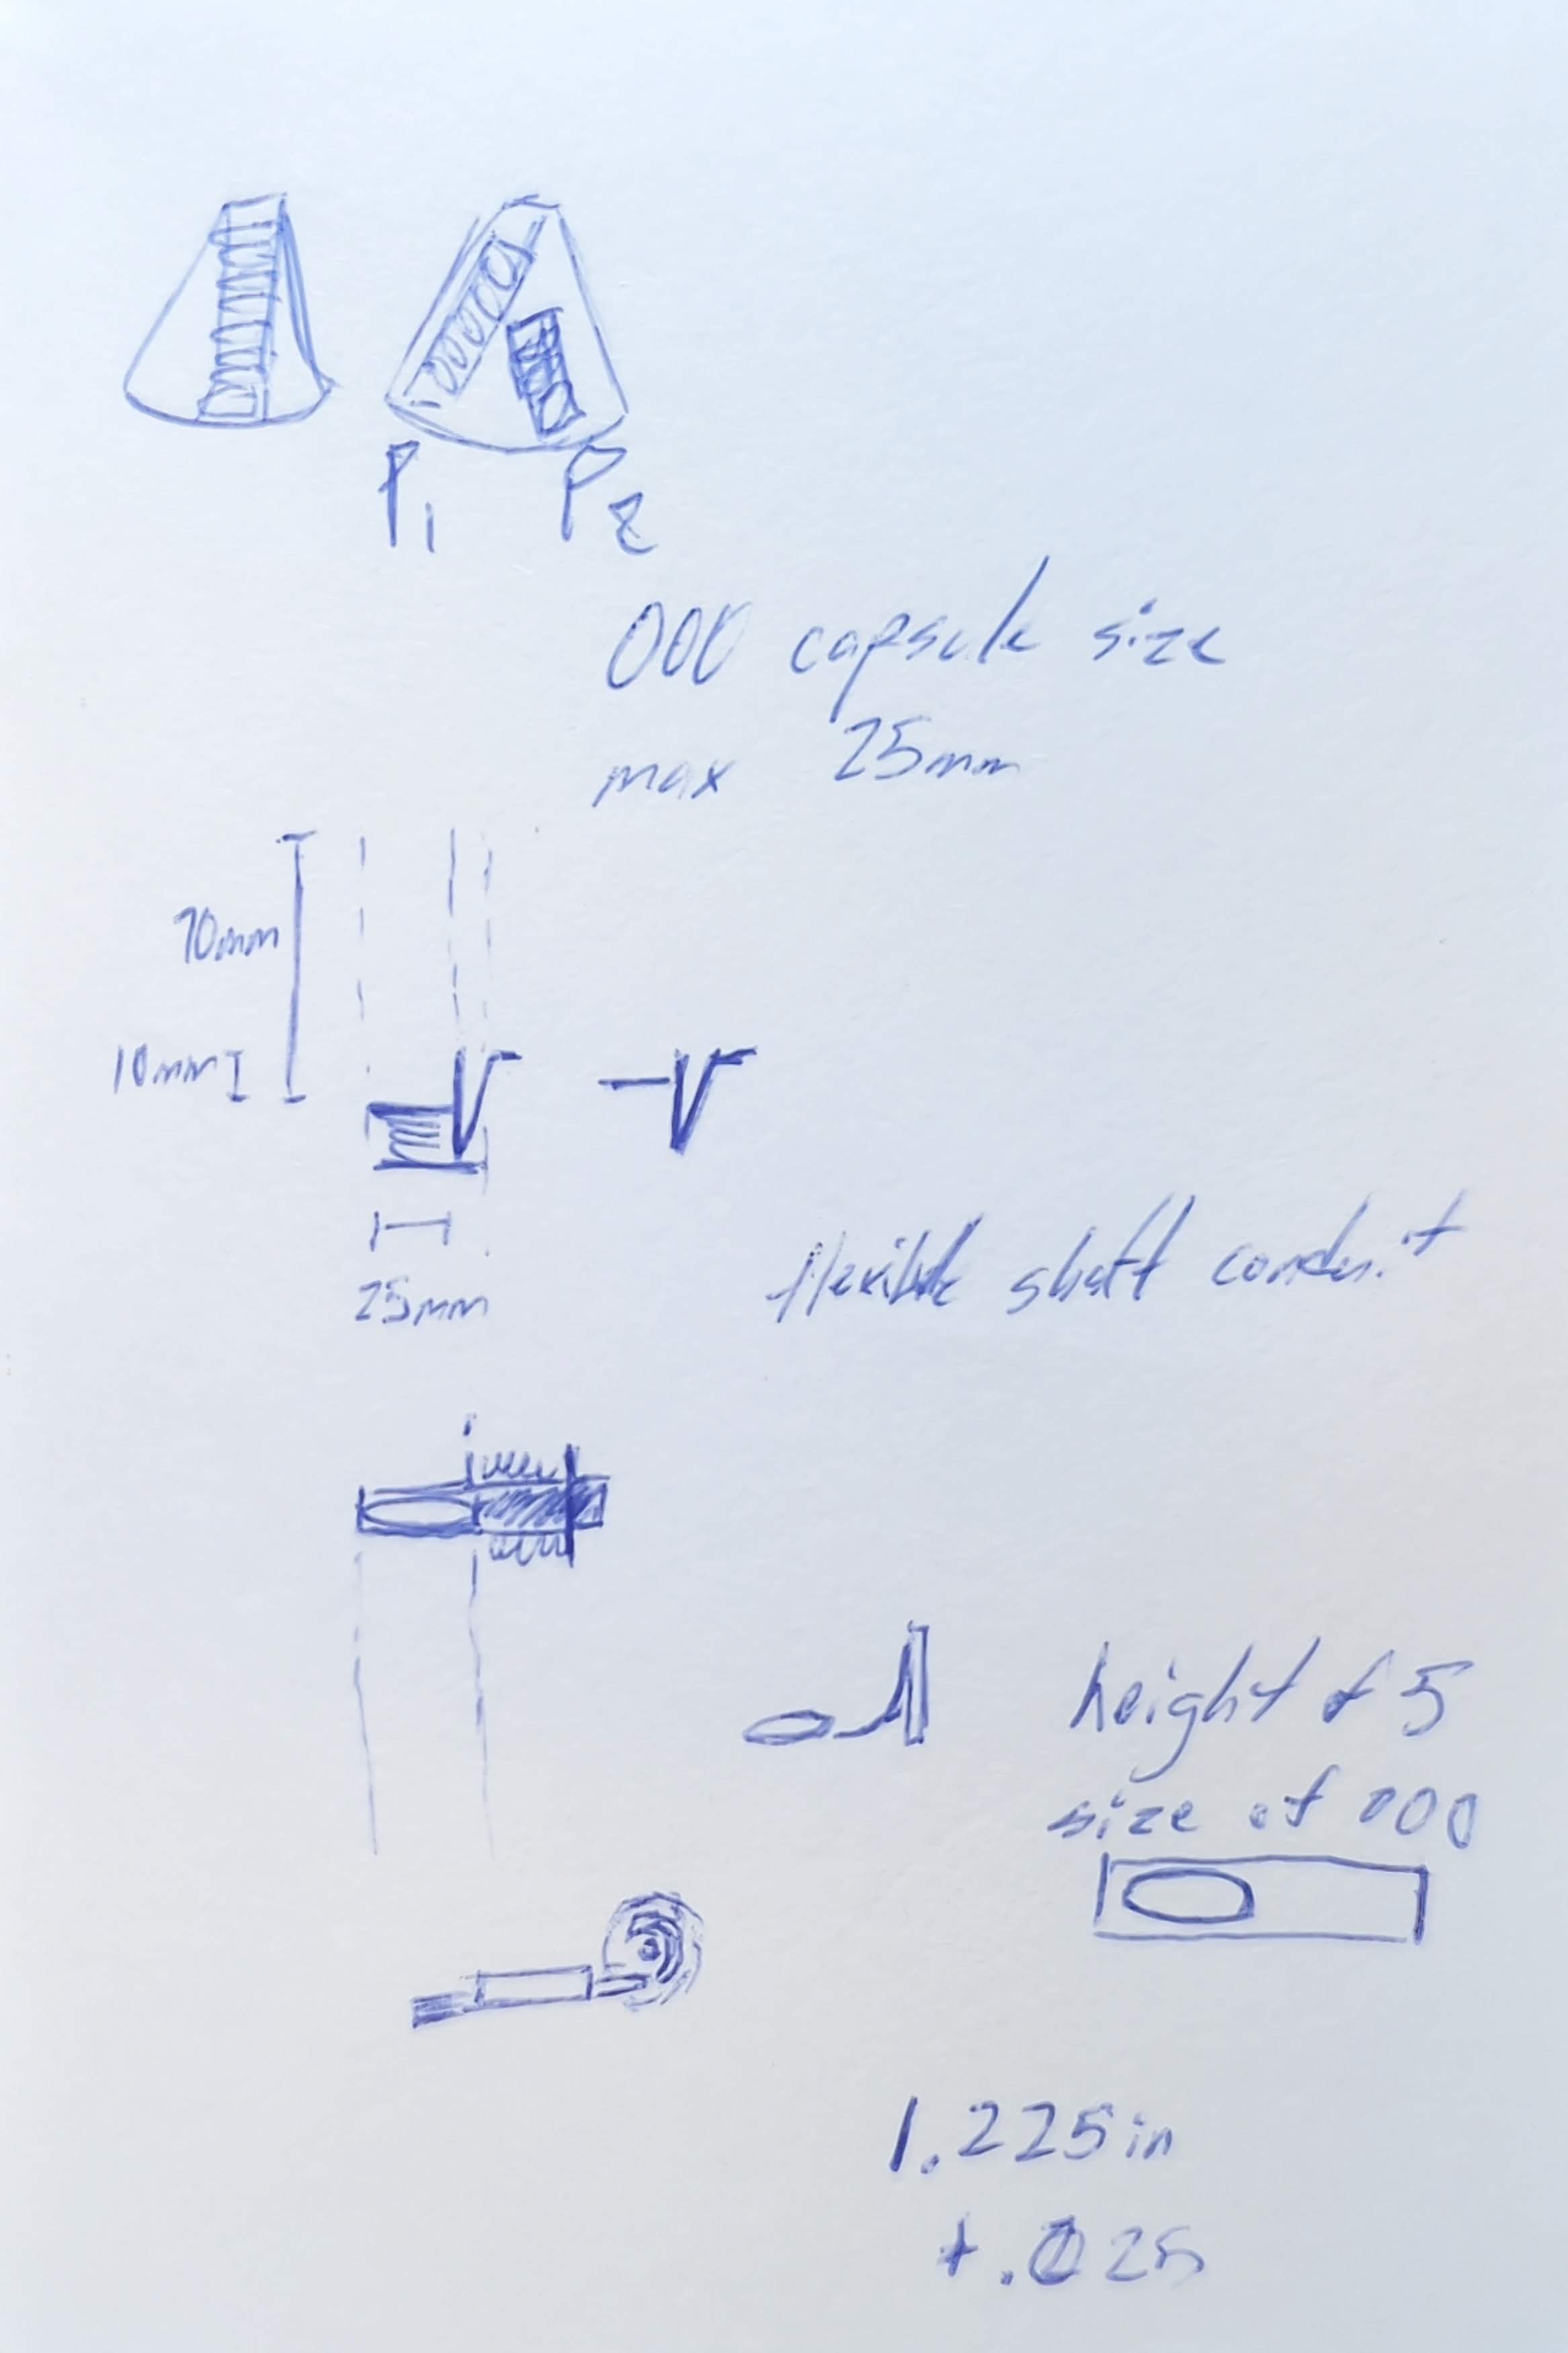 P1 P2
000 capsule size
max 25mm
70mm
10mm
25mm
flexible shaft conduit
height of 5
size of 000
1.225in
+.025